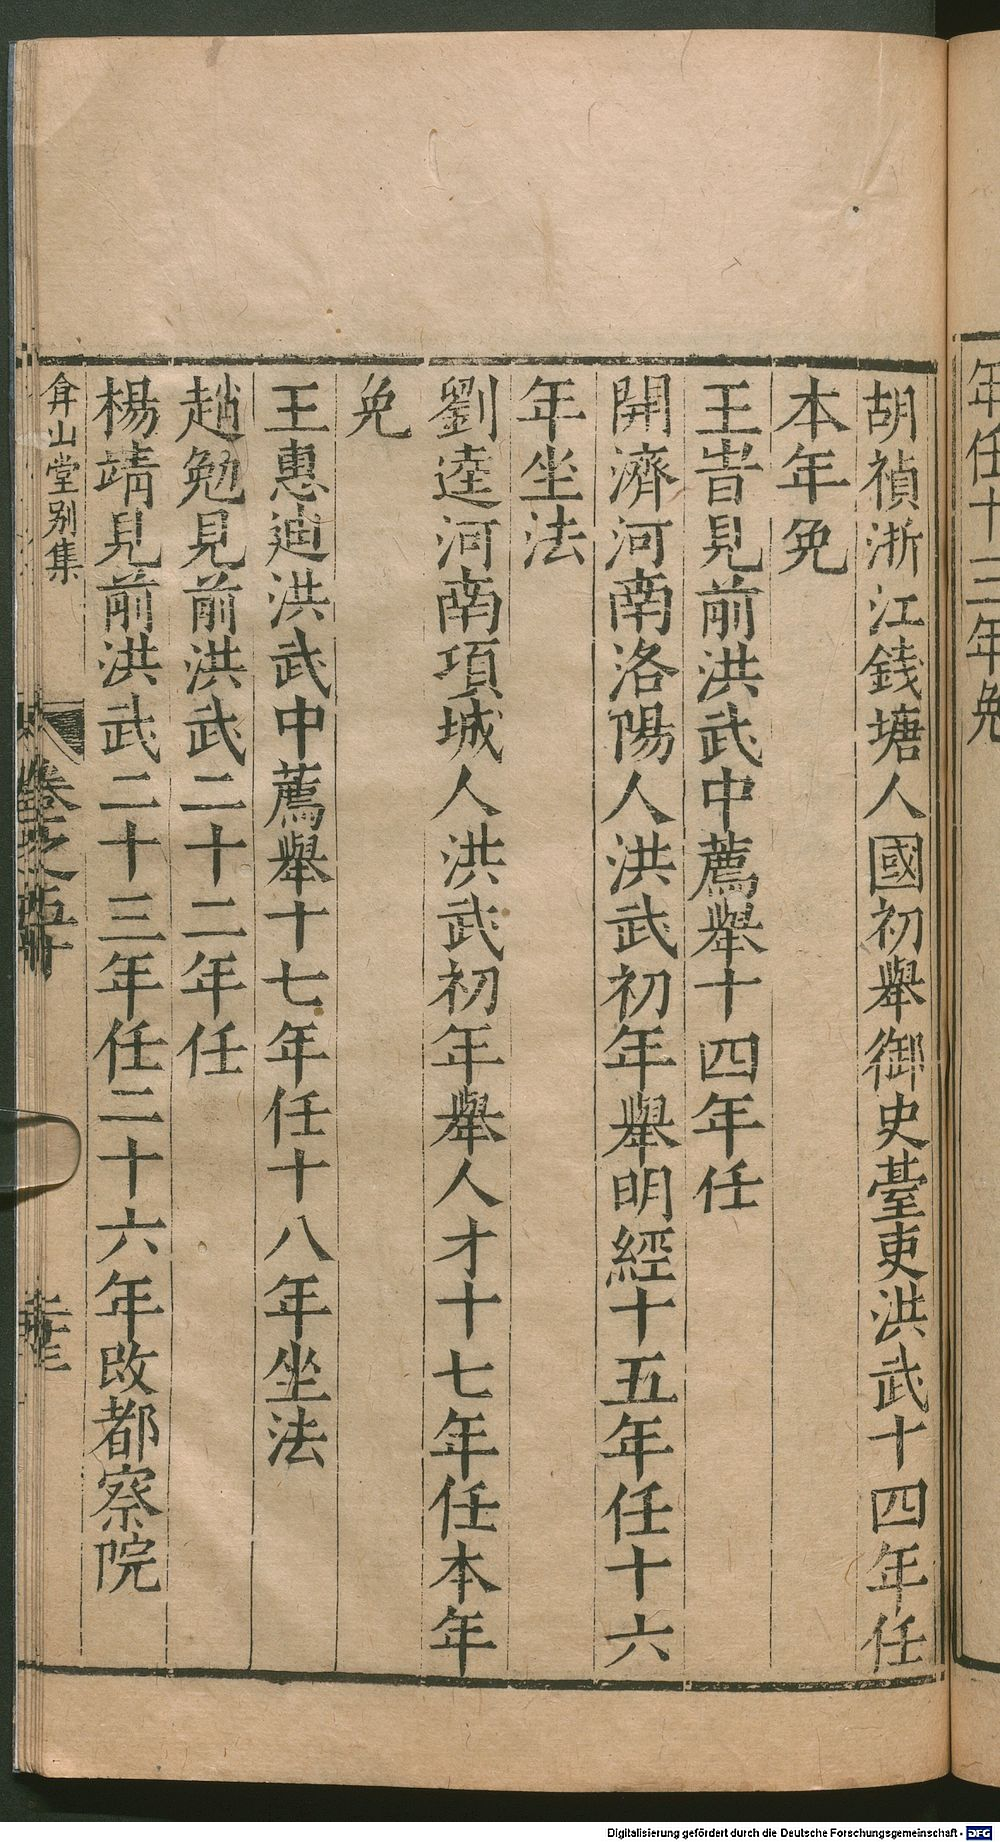 年任十三年免
胡禎浙江錢塘人國初舉御史臺吏洪武十四年任
本年免
王峕見前洪武中薦舉十四年任
開濟河南洛陽人洪武初年舉明經十五年任十六
年坐法
劉逵河南項城人洪武初年舉人才十七年任本年
免
王惠迪洪武中薦舉十七年任十八年坐法
趙勉見前洪武二十二年任
楊靖見前洪武二十三年任二十六年改都察院
弇山堂别集
卷之五十
Digitalisierung gefördert durch die Deutsche Forschungsgemeinschaft - DFG